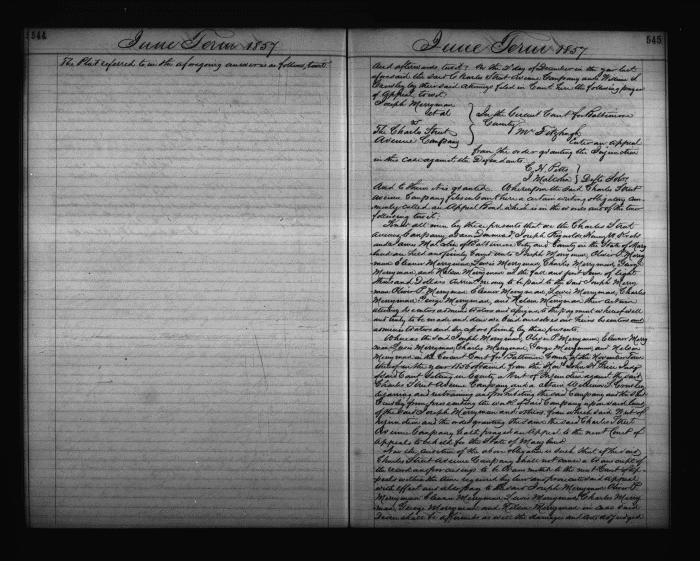 544
June Term 1857
The Plat referred to in the aforegoing answer is as follows, towit:
545
June Term 1857
And afterwards towit: On the day of December in the year last
aforesaid the said Charles Street Avenue Company and William S.
Crowley by their said Attorneys filed in Court here the following prayer
of appeal to wit
Joseph Merryman
et al
vs
The Charles Street
Avenue Company
In the Circuit Court for Baltimore
County
Mr Fitzhugh
Enter an appeal
from the order granting the Injunction
in this case against the Defendants
C. H. Pitts
J Malcolm
Defts Sols
And to them it is granted. Whereupon the said Charles Street
Avenue Company files in Court here a certain writing obligatory com
monly called an Appeal Bond which is in the words and of the tenor
following towit:
Know all men by these presents that we the Charles Street
Avenue Company, Joseph Reynolds, Henry M.
and James Malcolm of Baltimore City and County in the State of Mary
land are held and firmly bound unto Joseph Merryman, Oliver P. Merry
man Eleanor Merryman, Lewis Merryman, Charles Merryman, George
Merryman, and Helen Merryman in the full and just sum of Eight
Thousand Dollars current money to be paid to the said Joseph Merry
man Oliver P. Merryman Eleanor Merryman, Lewis Merryman, Charles
Merryman George Merryman, and Helen Merryman their certain
attorney executors administrators and assigns to the payment whereof well
and truly to be made and done we bind ourselves our heirs executors and
administrators and successors firmly by these presents.
Whereas the said Joseph Merryman, Oliver P. Merryman, Eleanor Merry
man, Lewis Merryman, Charles Merryman, George Merryman, and Helen
Merryman in the Circuit Court for Baltimore County at the November Term
in the year 1856 obtained from the Hon. John H. Price Judge
of said Court sitting in Equity a Writ of Injunction against the said
Charles Street Avenue Company and a certain William S. Crowley
enjoining and restraining and prohibiting the said Company and the said
Crowley from prosecuting the work of said Company upon said land
of the said Joseph Merryman and others, from which said Writ of
Injunction and the order granting the same the said Charles Street
Avenue Company hath prayed an appeal to the next Court of
Appeals to be held for the State of Maryland.
Now the condition of the above obligation is such that if the said
Charles Street Avenue Company shall not cause a transcript of
the record and proceedings to be transmitted to the next Court of Ap
peals within the time required by law and prosecute said appeal
with effect and also pay to the said Joseph Merryman Oliver P.
Merryman Eleanor Merryman, Lewis Merryman, Charles Merry
man, George Merryman, and Helen Merryman in case said
shall be affirmed as well the damages and costs adjudged